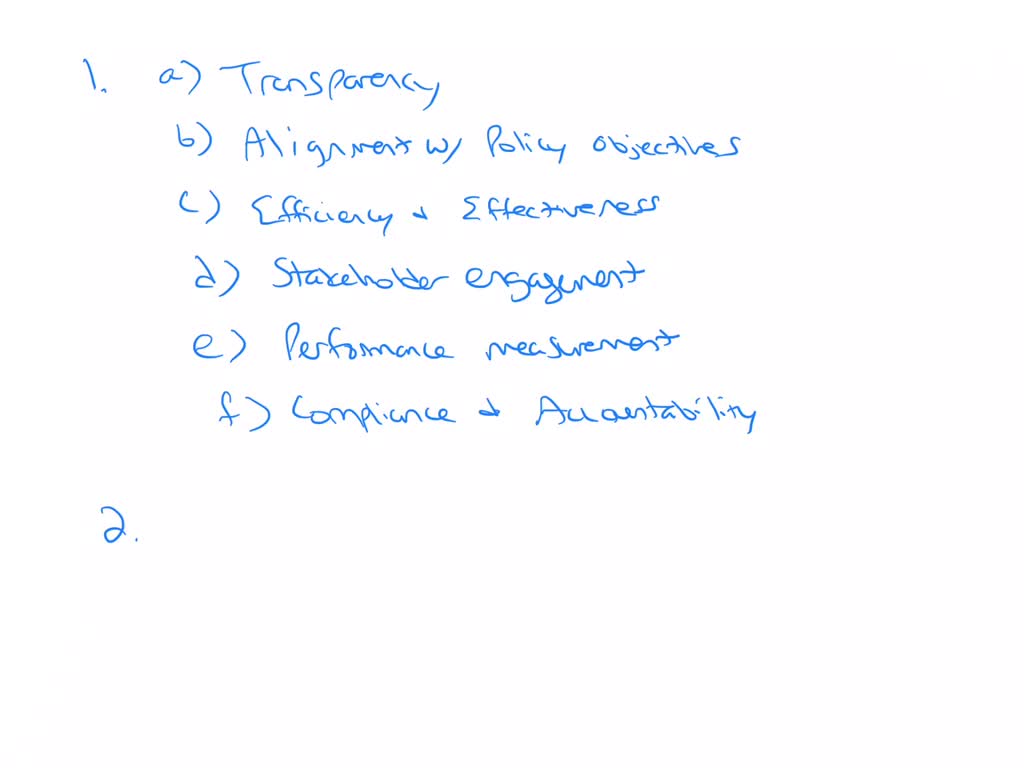 1. a) Transparency
b) Alignment w/ Policy objectives
c) Efficiency & Effectiveness
d) Stakeholder engagement
e) Performance measurement
f) Compliance & Accountability
2.